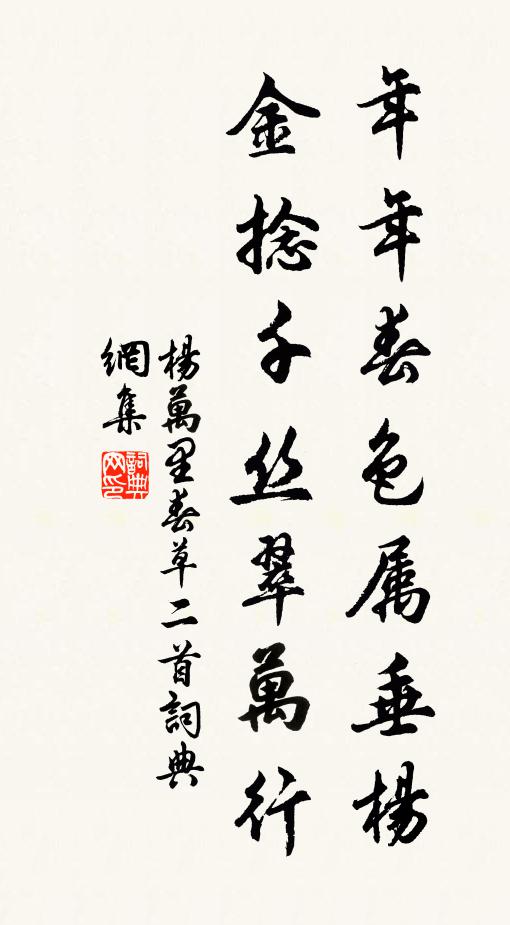 年年春色属垂楊
金捻千丝翠萬行
楊萬里春草二首詞典
網集
詞典
网印